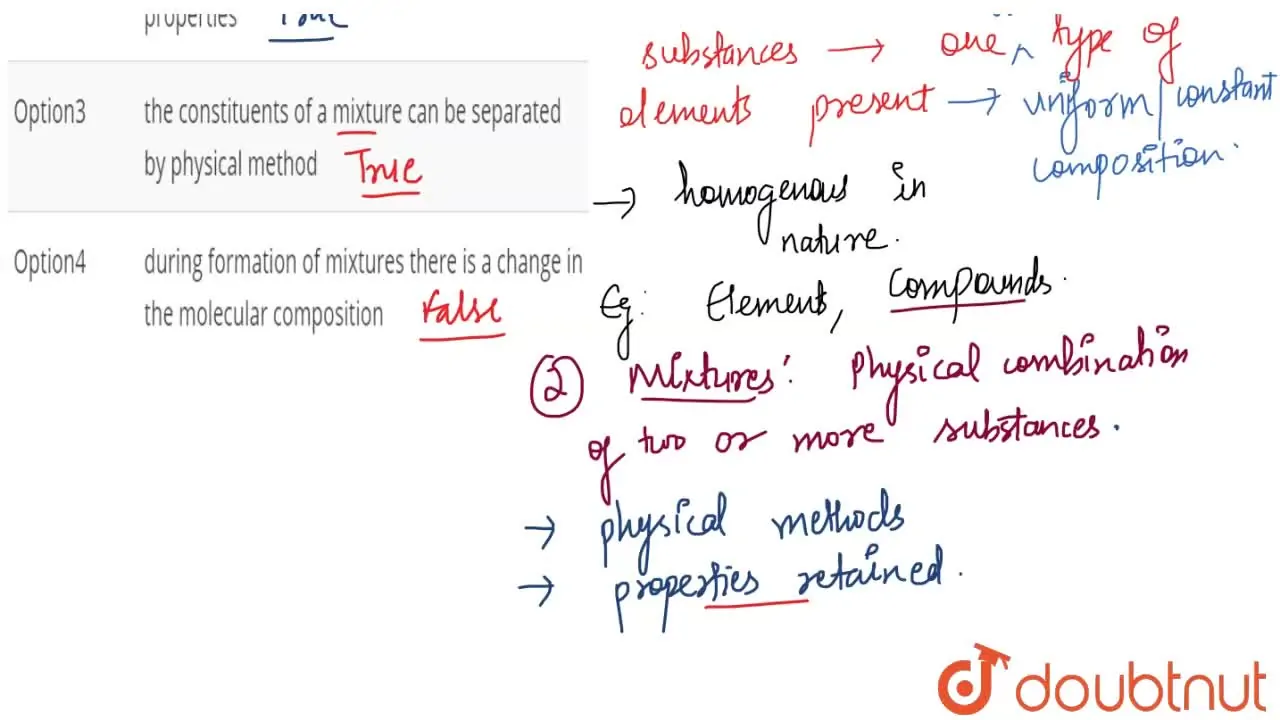 properties True
Option3 the constituents of a mixture can be separated
by physical method True
Option4 during formation of mixtures there is a change in
the molecular composition False
substances → one type of
elements present → uniform/constant
composition.
→ homogenous in
nature.
Eg: Element, compounds.
② Mixtures: Physical combination
of two or more substances.
→ physical methods
→ properties retained.
doubtnut